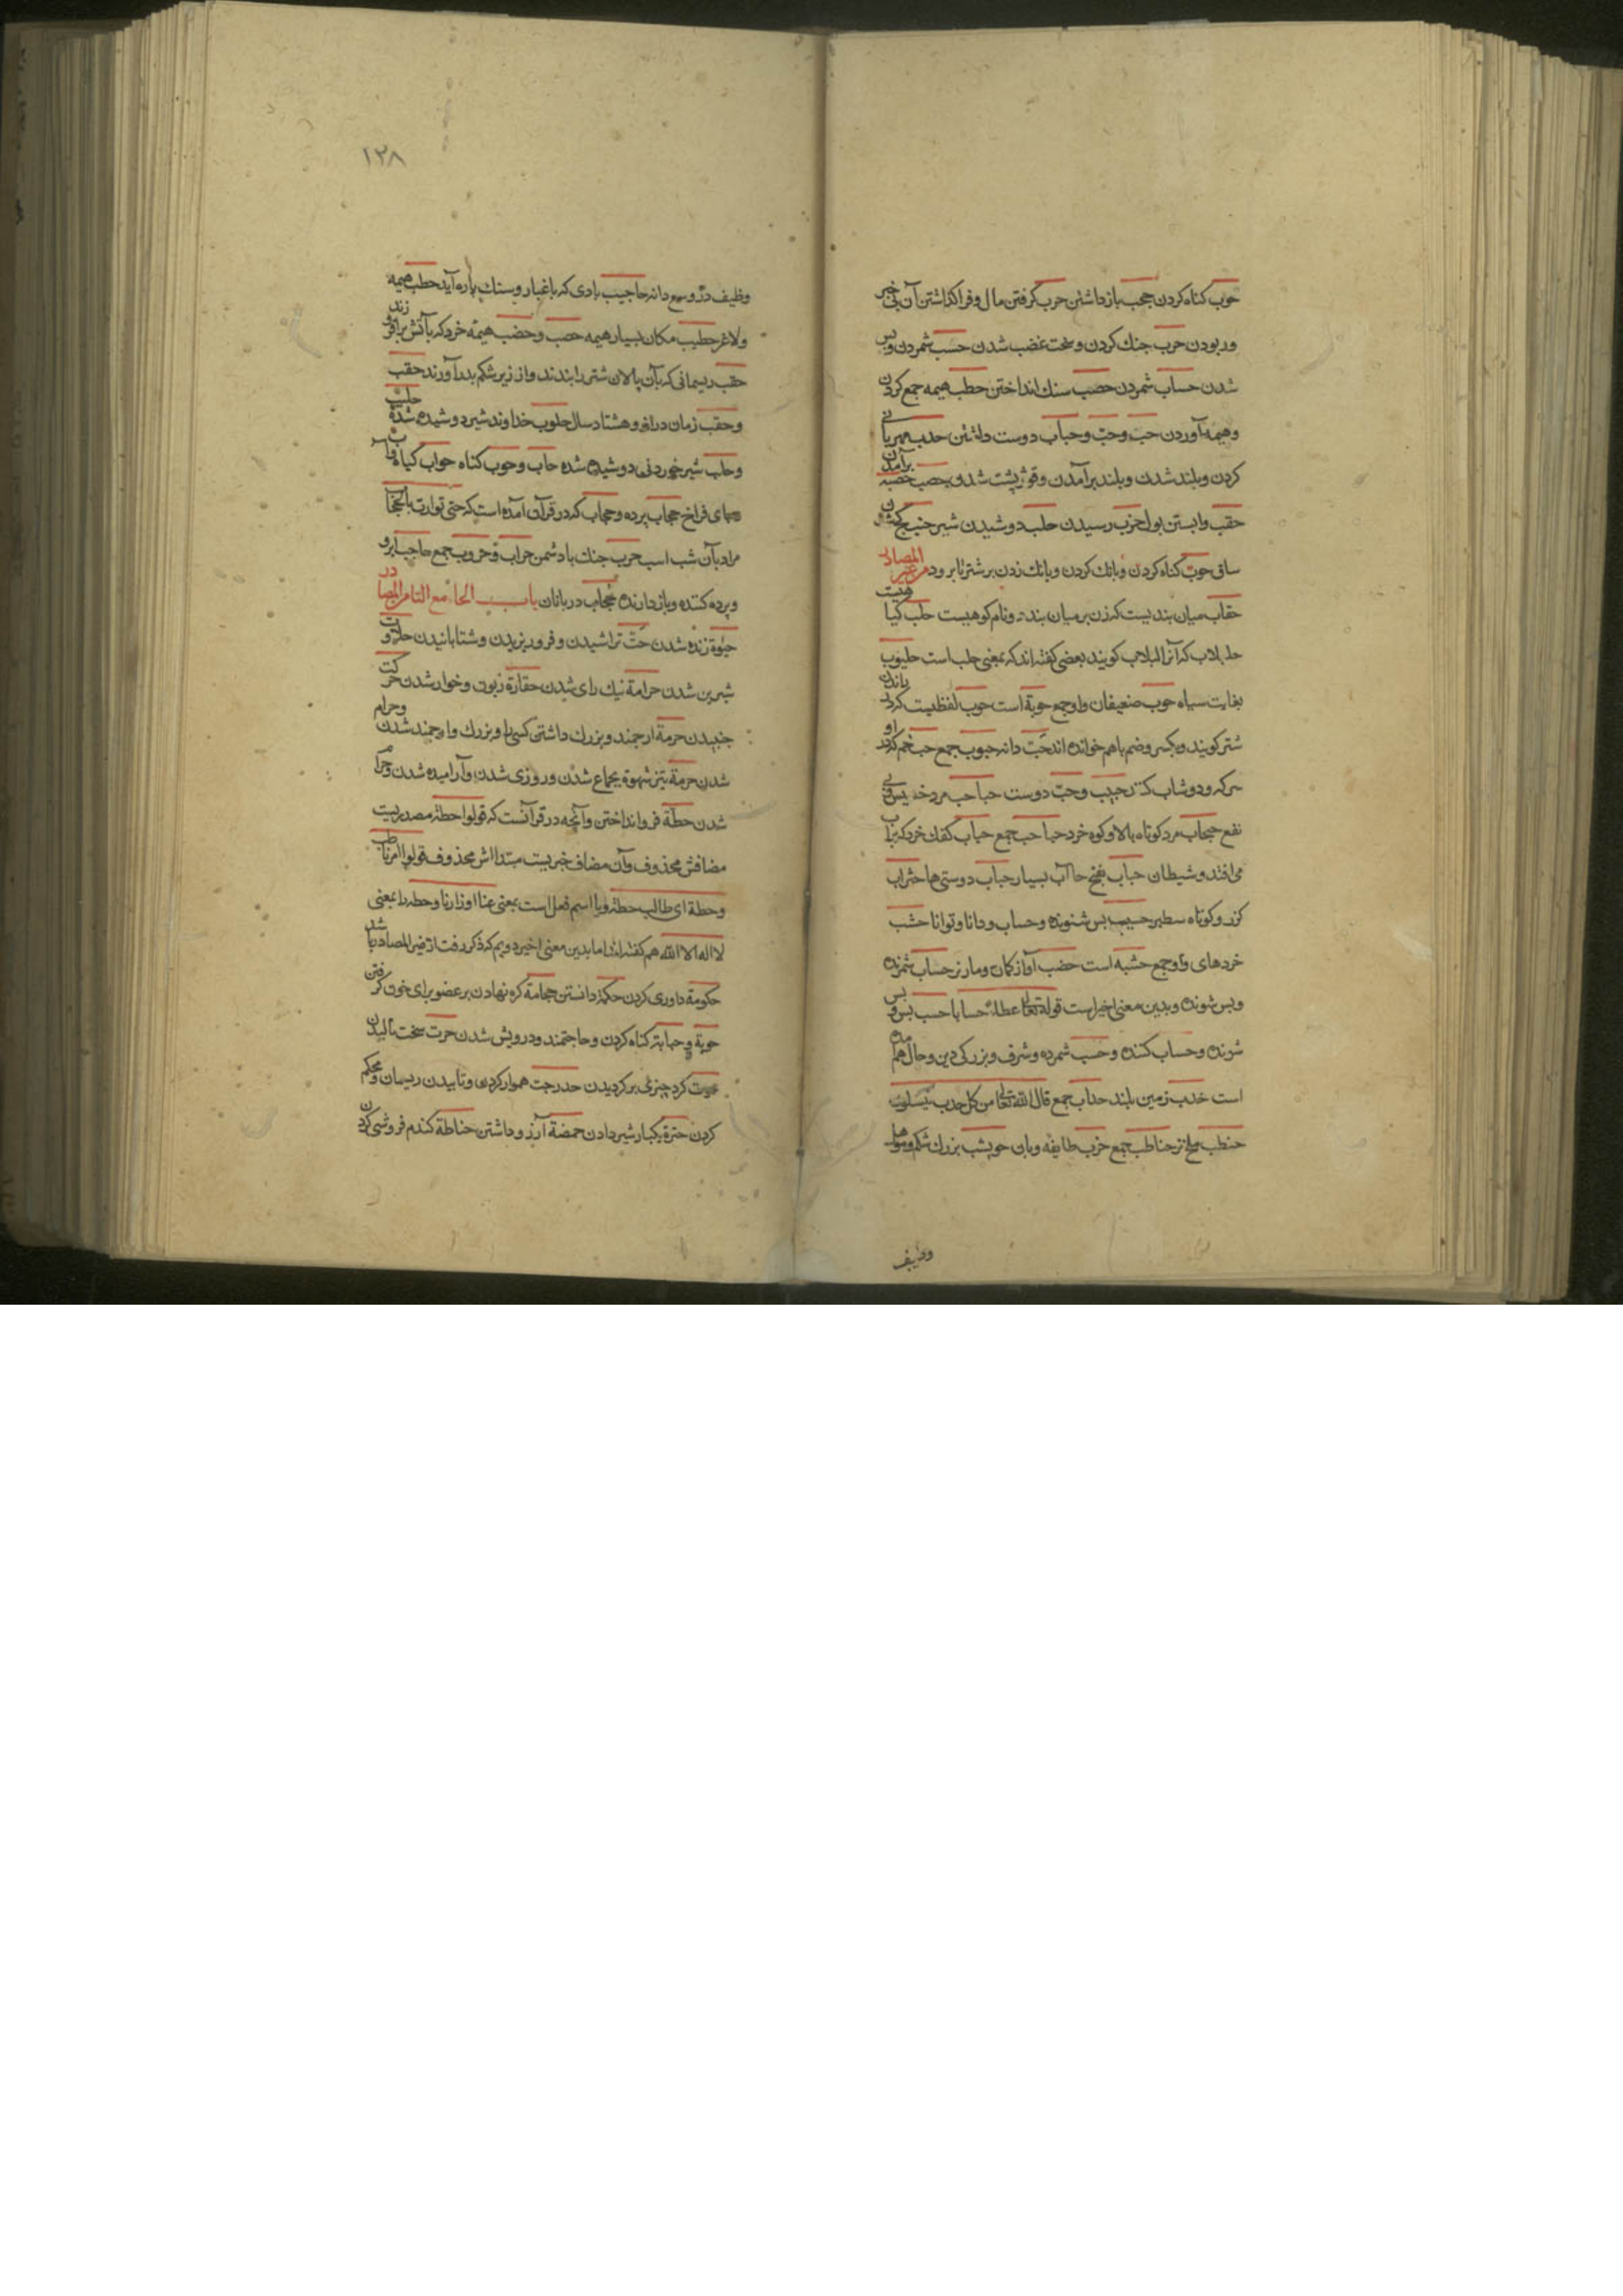 حوب کناه کردن حجب بازداشتن حرب کرفتن مال و فراکذاشتن آن بی خبر
و ربودن حرب جنک کردن و سخت غضب شدن حسب شمردن و بس
شدن حساب شمردن حصب سنک انداختن حطب هیمه جمع کردن
و هیمه آوردن حب و حبّ و حباب دوست داشتن حدب مهربانی
کردن و بلند شدن و بلند برآمدن و قوز پشت شدن حصب حصبه برآمدن
حقب وابستن بول حزب رسیدن حلب دوشیدن شیر حنب کج شدن
ساق حوب کناه کردن و بانک کردن و بانک زدن بر شتر تا برود من غیر المصادر
حقاب میان بندیست که زن بر میان بندد و نام کوهیست حلب کیاهیست
حلبلاب که آنرا لبلاب کویند بعضی کفته اند که بمعنی حلب است حلبوب
بغایت سیاه حوب ضعیفان واو جمع حوبة است حوب لفظیست که راندن
شتر کویند و بکسر و ضم با هم خوانده اند حبّ دانه حبوب جمع حب خم که در او
سرکه و دوشاب کنند حبیب و حبّ دوست حباحب مرد خسیس بی
نفع حبحاب مرد کوتاه بالا و کوه خرد حباحب جمع حباب کفک خرد که بر آب
می افتد و شیطان حباب بفتح حا آب بسیار حباب دوستی ها حثراب
کزر و کوتاه سطبر حسیب بس شنونده و حساب و دانا و توانا حشب
خردهای واو جمع حشبه است حضب آواز کمان و مار نر حساب شمرنده
و بس شونده و بدین معنی اخیر است قوله تعالی عطاء حسابا حسب بس و بس
شونده و حساب کننده و حسب شمرده و شرف و بزرکی دین و حال مال هم
است حدب زمین بلند حداب جمع قال الله تعالی من کل حدب ینسلون
حنطب ملخ نر حناطب جمع حزب طایفه و یاران حوشب بزرک شکم و موها
وظیف
۱۳۸
وظیف در و سمع دانه حاجیب بادی که با غبار و سنک پاره آید حطب هیمه
و لاغر حطیب مکان بسیار هیمه حصب و حضب هیمه خرد که بآتش برافروزند
حقب ریسمانی که بآن پالان شتر را بندند و از زیر شکم بدر آورند حقب
و حقب زمان دراز و هشتاد سال حلوب خداوند شیر دوشیده شده حلیب
و حلب شیر خوردنی دوشیده شده حاب و حوب کناه حواب کیاه و آب
های فراخ حجاب پرده و حجاب که در قرآن آمده است که حتی توارت بالحجاب
مراد بآن شب است حرب جنک با دشمن حراب و حروب جمع حاجب ابرو
و پرده کننده و بازدارنده حجاب دربانان باب الحا مع التا من المصادر
حیوة زنده شدن حتّ تراشیدن و فرو ریزیدن و شتابانیدن حلاوت
شیرین شدن حرامة نیک رای شدن حقارة زبون و خوار شدن حرکت
جنبیدن حرمة ارجمند و بزرک داشتن کسی را و بزرک و ارجمند شدن و حرام
شدن حرمة تیز شهوة بجماع شدن و روزی شدن و آرامیده شدن و حرام
شدن حطّة فرو انداختن و آنچه در قرآنست که قولوا حطة مصدریست
مضافش محذوف و آن مضاف خبریست مبتدااش محذوف قولوا امرنا طلب
و حطة ای طالب حطة و یا اسم فعل است بمعنی عنا اوزارنا و حطه را بمعنی
لا اله الا الله هم کفته اند اما بدین معنی اخیر دویم که ذکر رفت از غیر المصادر باشد
حکومة داوری کردن حکمة دانستن حجامة کره نهادن بر عضو برای خون کرفتن
حوبة و حیابة کناه کردن و حاجتمند و درویش شدن حرت سخت مالیدن
کرد چیزی بر کردیدن حدرجت هموار کردن و تابیدن ریسمان و محکم
کردن حترة یکبار شیر دادن حمضة آرزو داشتن حناطة کندم فروشی کردن